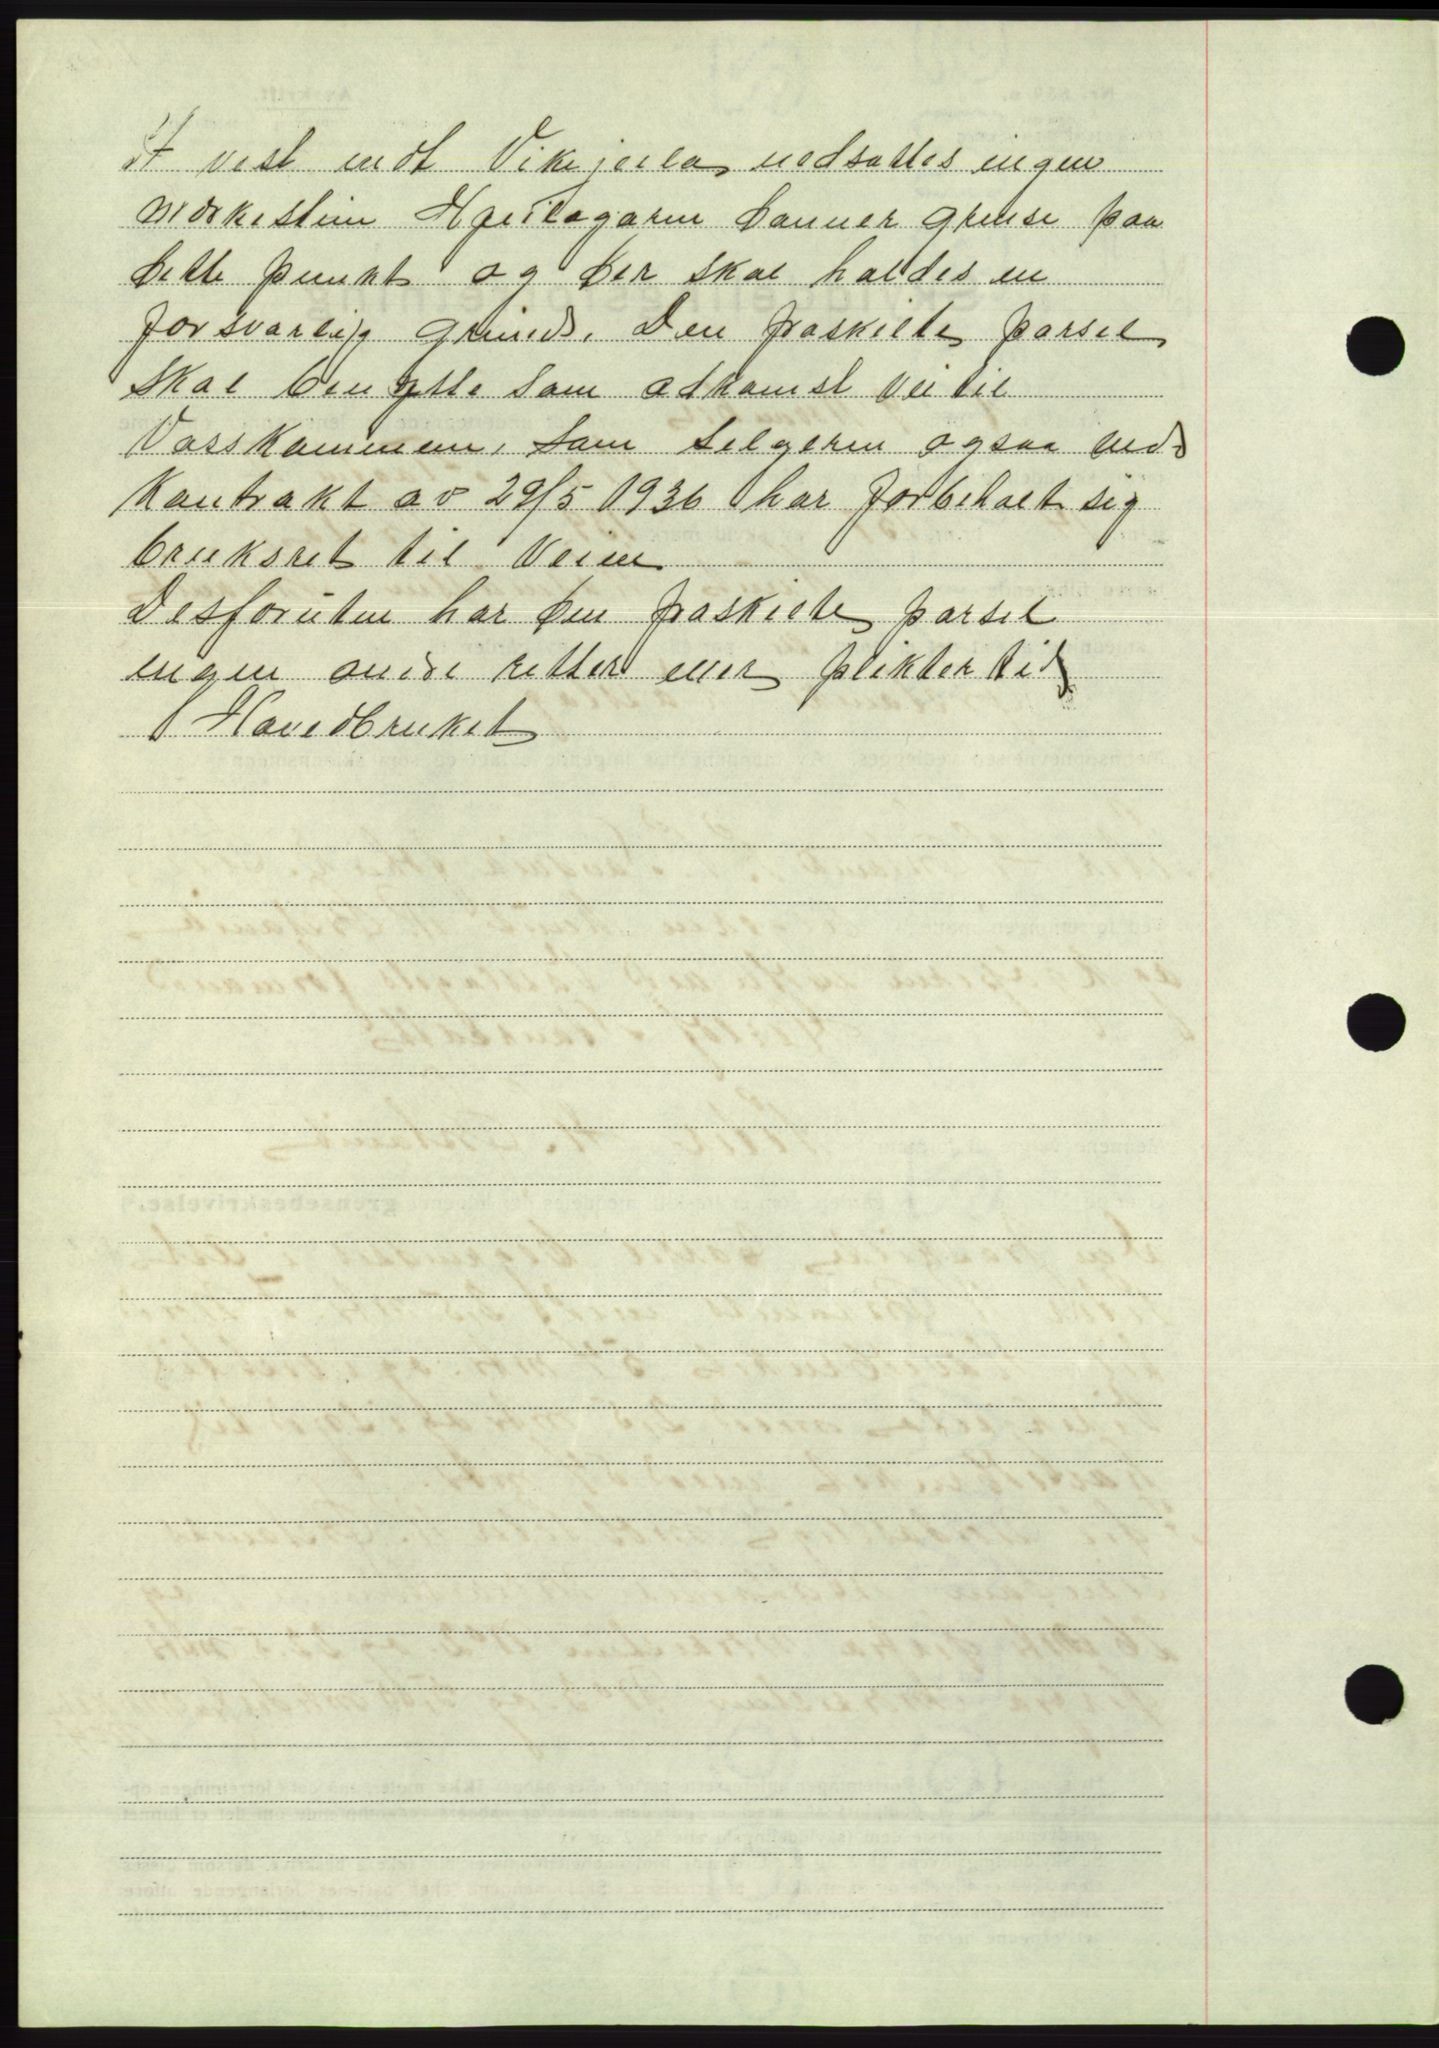 I vest mot Vikejeila nedsattes ingen
merkestein Hjeilegaren danner grense paa
dette punkt og der skal haldes en
forsvarlig grind. Den fraskilte parsel
skal benytte som adkomst vei til
Vasskammen, som selgeren ogsaa ved
Kontrakt av 29/5 1936 har forbeholt sig
bruksret til Veien
Desforuten har den fraskilte parsel
ingen andre retter eller plikter til
Hovedbruket